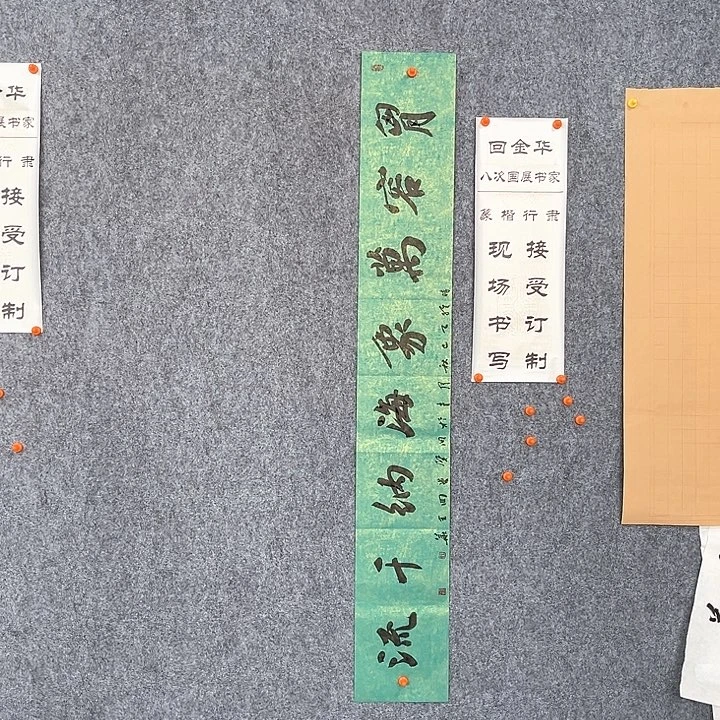 金华
展书家
行隶
接受订制
胷容萬象海納千流
回金华
八次国展书家
篆楷行隶
现场书写
接受订制